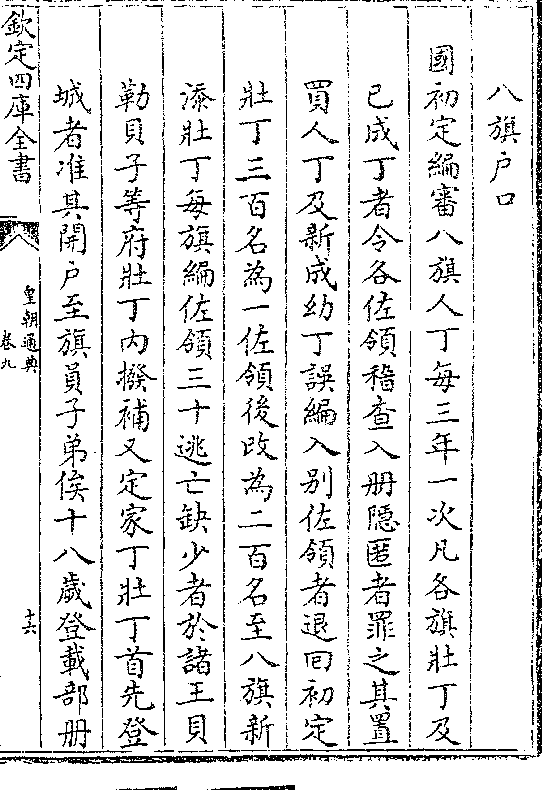 八旗户口
國初定編審八旗人丁每三年一次凡各旗壯丁及
已成丁者令各佐領稽查入册隱匿者罪之其置
買人丁及新成幼丁誤編入别佐領者退回初定
壯丁三百名為一佐領後改為二百名至八旗新
添壯丁每旗編佐領三十逃亡缺少者於諸王貝
勒貝子等府壯丁内撥補又定家丁壯丁首先登
城者准其開户至旗員子弟俟十八歲登載部册
欽定四庫全書
皇朝通典
卷九
十六